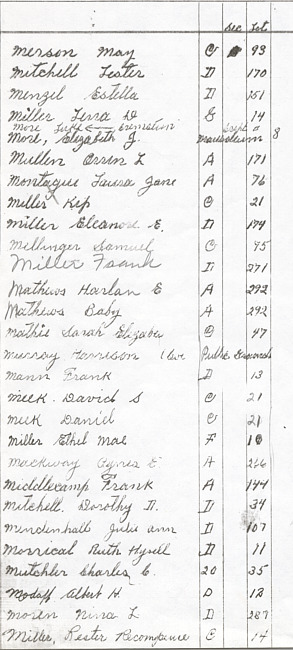 Sec Lot
Merson May C 93
Mitchell Lester D 170
Menzel Estella D 151
Miller Lena D G 14
More Cremation
More, Elizabeth J. Mausoleum 8
Mullen Orvin L A 171
Montague Laura Jane A 76
Miller Kip C 21
Miller Eleanore E. D 174
Millinger Samuel C 95
Miller Frank D 271
Mathews Harlan E A 292
Mathews Baby A 292
Mathis Sarah Elizabe C 47
Murray Harrison Public Grounds
Mann Frank D 13
Meek David S C 21
Meek Daniel C 21
Miller Ethel Mae F 10
Mackway Agnes E A 266
Middlecamp Frank A 144
Mitchell, Dorothy D. D 34
Mendenhall Julie Ann D 107
Morrical Ruth Hysell D 11
Mutchler Charles C. 20 35
Modaff Albert H. D 12
Moren Nina L D 287
Miller, Lester Recompance C 14